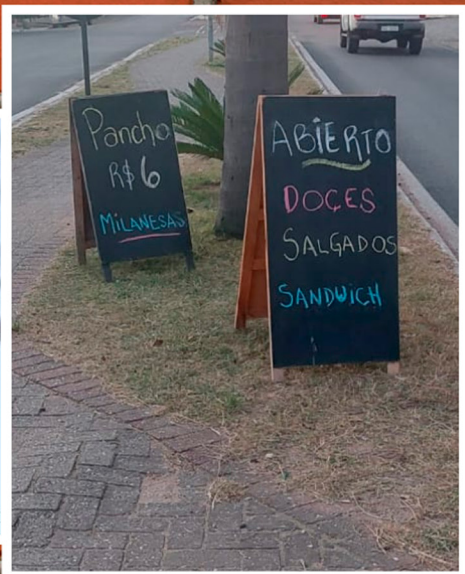 Pancho
R$6
MILANESAS
ABIERTO
DOÇES
SALGADOS
SANDWICH